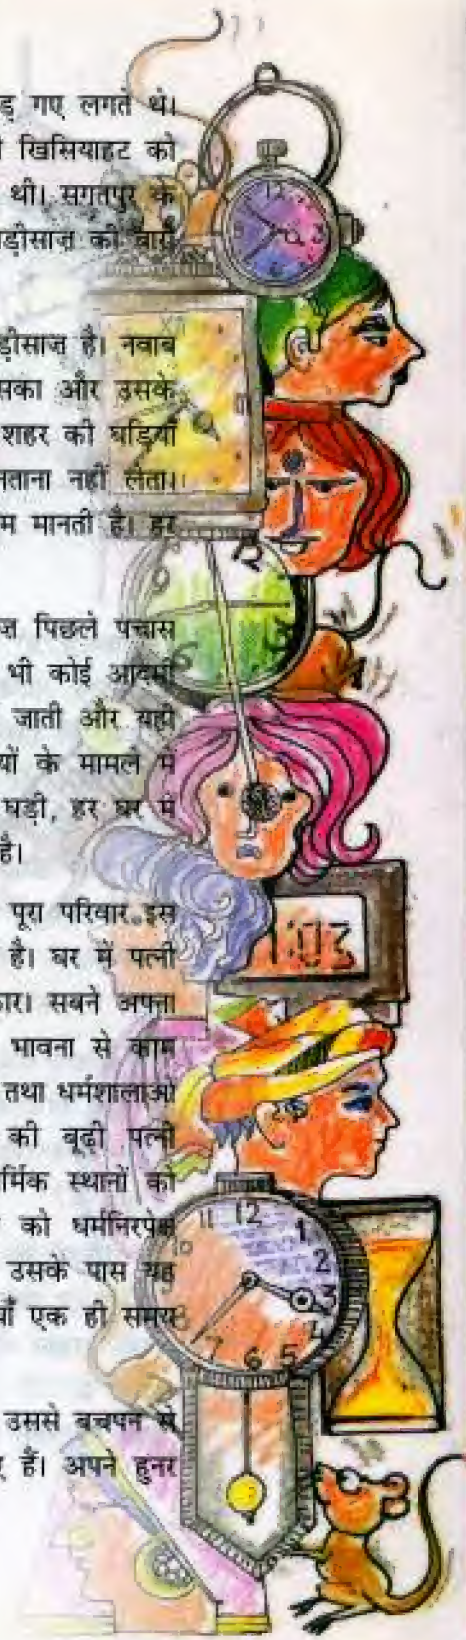 ड़ गए लगते थे।
खिसियाहट को
थी। सगतपुर के
ड़ीसाज़ की बारी
ड़ीसाज़ है। नवाब
सका और उसके
शहर की घड़ियाँ
नताना नहीं लेता।
म मानती है। हर
पिछले पचास
भी कोई आदमी
जाती और यही
यों के मामले में
घड़ी, हर घर में
है।
पूरा परिवार इस
है। घर में पत्नी
कार। सबने अपना
भावना से काम
तथा धर्मशालाओं
की बूढ़ी पत्नी
र्मिक स्थानों को
को धर्मनिरपेक्ष
उसके पास यह
याँ एक ही समय
उससे बचपन से
हैं। अपने हुनर
12
3
12
9
6
1:03
11 12 1
10 2
3
4
7 6 5